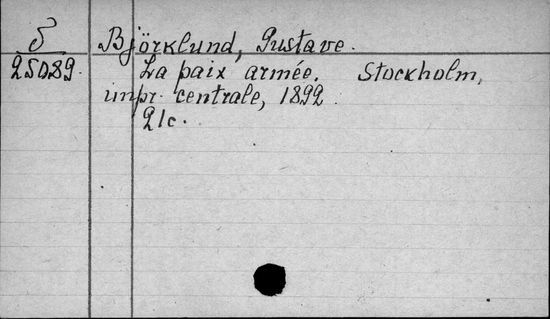 Björklund, Gustave.
25089. La paix armée. Stockholm,
impr. centrale, 1892.
21c.